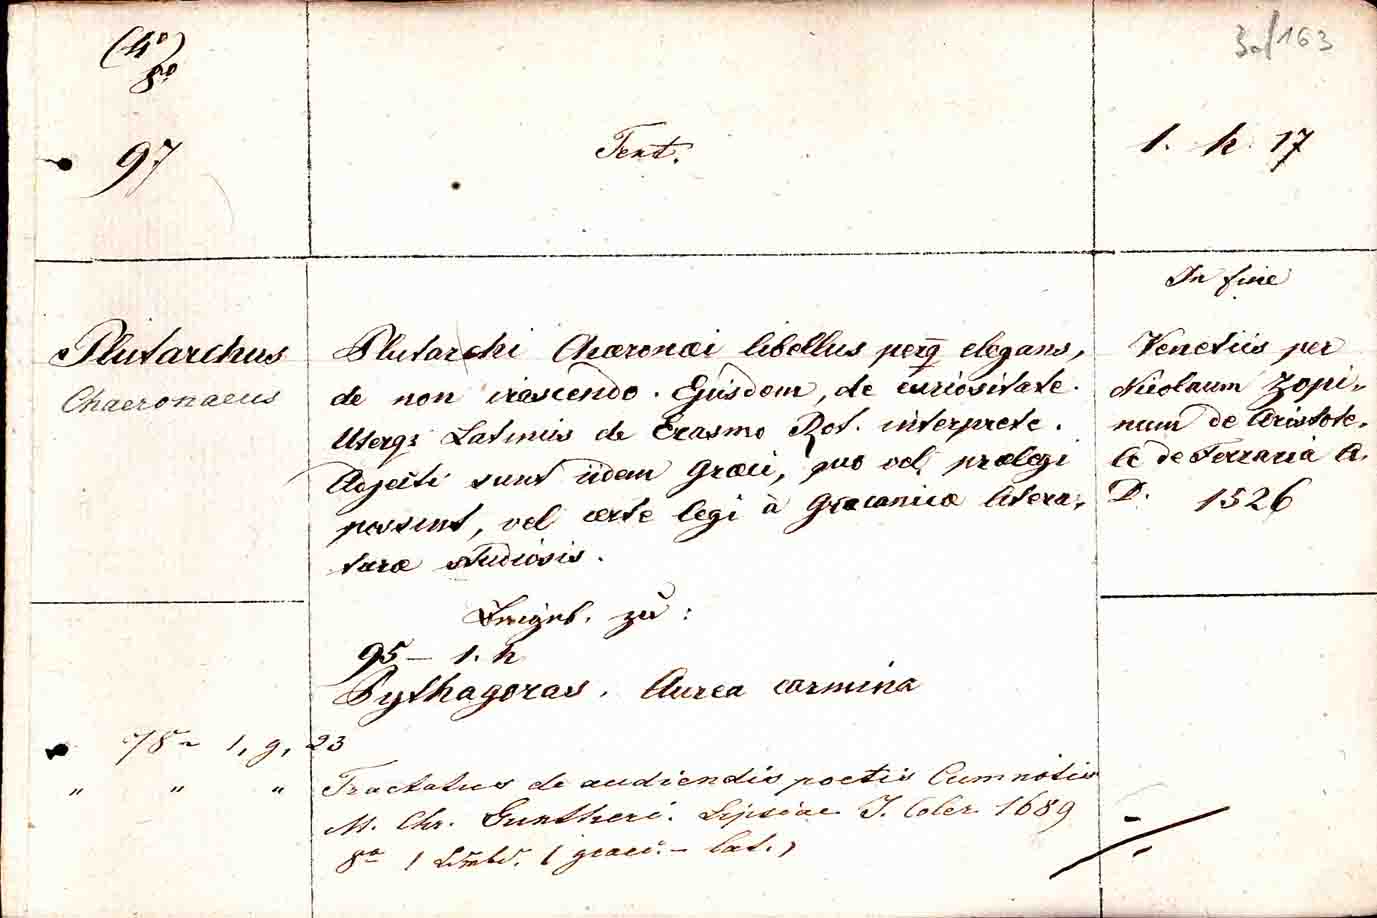 (4°)
8°
3a/163
97
Text.
1. h. 17
In fine
Plutarchus
Chaeronaeus
Plutarchi Chæronæi libellus perq̃ elegans,
de non irascendo. Ejusdem, de curiositate.
Uterqꝫ Latinus de Erasmo Rot. interprete.
Adjecti sunt iidem Græci, quo vel prælegi
possint, vel certe legi à Græcanicæ litera-
turæ studiosis.
Venetiis per
Nicolaum Zopi-
num de Aristote-
le de Ferraria A.
D. 1526
zu:
95 – 1. h
Pythagoras. Aurea carmina
78 – 1, g, 23
" " " Tractatus de audiendis poetis Cum notis
M. Chr. Guntheri. Lipsiae J. Coler 1689
8° 1 (graec. – lat.)